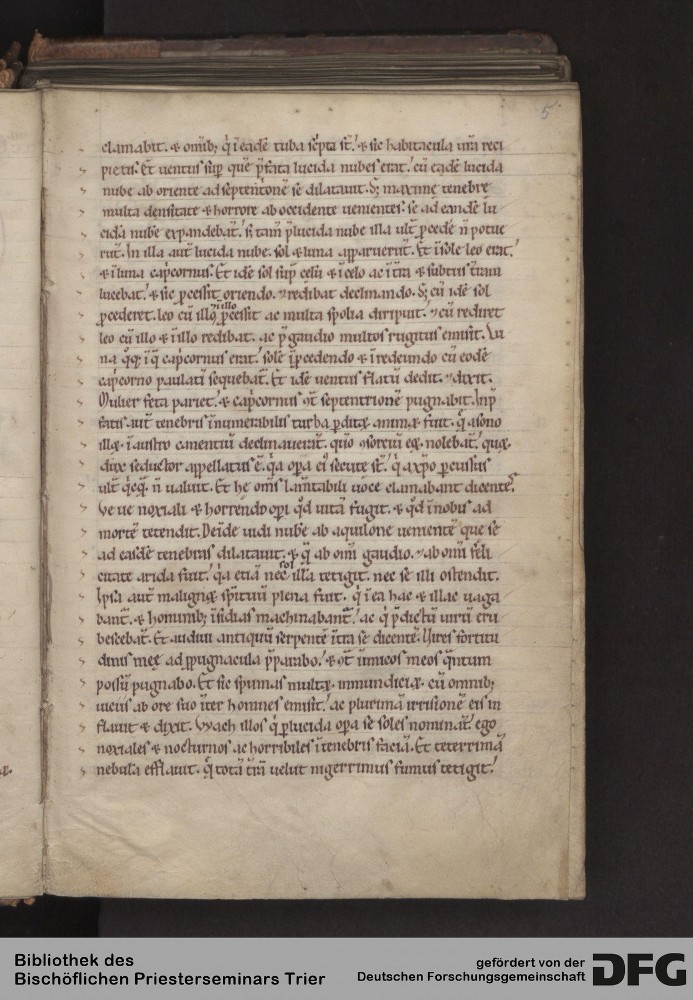 5
clamabit. & omib; q̇ i eadē tuba sc̓pta st̄.' & sic habitacula ur̄a reci
pietis. Et uentus sup̱ quē p̄fata lucida nubes erat.' cū eadē lucida
nube ab oriente ad septentͥonē se dilatauit. S; maxime tenebre
multa densitate & horrore ab occidente uenientes. se ad eandē lu
cidā nubē expandebat̄.' s; tam̄ p̄lucida nube illa ult̄ p̱cedē n̄ potue
rūt. In illa aut̄ lucida nube. sol & luna apparuerūt. Et i sole leo erat.'
& i luna cap̓cornus. Et idē sol sup̄ celū & i celo ac i t̄ra & subtus t̄ram
lucebat.' & sic p̱cessit oriendo. & redibat declinando. S; cū idē sol
p̱cederet. leo cū illo & i illo p̱cessit ac multa spolia diripuit. & cū rediret
leo cū illo & i illo redibat. ac p̄ gaudio multos rugitus emisit. Lu
na q̊q; i q̄ cap̓cornus erat.' solē ī p̱cedendo & i redeundo cū eodē
cap̓corno paulatī sequebat̄. Et idē uentus flatū dedit. & dixit.
Mulier fetā pariet.' & cap̓cornus 9t̄ septentrionē pugnabit. Inp̄
fatis aut̄ tenebris inumerabilis turba p̱ditaꝝ animaꝝ fuit. q̄ a sono
illoꝝ i austro canentiū declinauerāt. quō 9sortiū eoꝝ nolebāt.' quaꝝ
dux seductor appellatus ē. q̇a op̱a ei' secute st̄.' q̇ a xp̄o p̱cussus
ult̄ q̇cq̄ n̄ ualuit. Et hę om̄s lam̄tabili uoce clamabant dicentes.
Ve ue noxiali & horrendo op̱i qd̄ uitā fugit. & qd̄ i nobis ad
mortē tetendit. Deīde uidi nubē ab aquilone uenientē que se
ad easdē tenebras dilatauit. & q̄ ab om̄i gaudio. & ab om̄i feli
citate arida fuit.' q̇a etiā nec sol illā tetigit. nec se illi ostendit.
Ipsa aut̄ malignoꝝ spirituū plena fuit. q̇ i ea hac & illac uaga
bant̄. & hominib; isidias machinabant̄.' ac q̇ p̄dictū uirū eru
bescebat̄. Et audiui antiquū serpentē ītra se dicentē. Vires fortitu
dinis meę ad p̱pugnacula p̄parabo.' & 9t̄ inimicos meos q̄ntum
possū pugnabo. Et sic spumas multaꝝ inmundiciaꝝ. cū omnib;
uiciis ab ore suo iter homines emisit.' ac plurimā irrisionē eis in
flauit & dixit. Wach illos q̇ p̱ lucida op̱a se soles nominat̄.' ego
noxiales & nocturnos ac horribiles i tenebris faciā. Et teterrimā
nebulā efflauit. q̄ totā t̄rā uelut nigerrimus fumus tetigit.'
Bibliothek des
Bischöflichen Priesterseminars Trier
gefördert von der
Deutschen Forschungsgemeinschaft
DFG